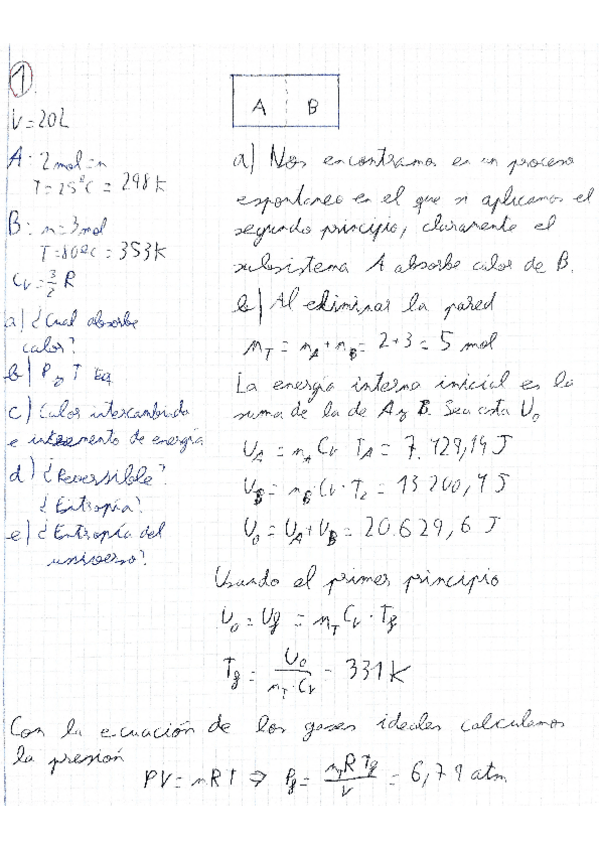 1
V = 20L
A: 2 mol = n
T = 25ºC = 298 K
B: n = 3 mol
T = 80ºC = 353 K
Cv = 3/2 R
a) ¿Cual absorbe
calor?
b) P y T Eq
c) Calor intercambiado
e incremento de energía
d) ¿Reversible?
¿Entropía?
e) ¿Entropía del
universo?
A B
a) Nos encontramos en un proceso
espontaneo en el que si aplicamos el
segundo principio, claramente el
subsistema A absorbe calor de B.
b) Al eliminar la pared
n_T = n_A + n_B = 2+3 = 5 mol
La energía interna inicial es la
suma de la de A y B. Sea esta U₀
U_A = n_A Cv T_A = 7.429,19 J
U_B = n_B · Cv · T_2 = 13200,4 J
U₀ = U_A + U_B = 20.629,6 J
Usando el primer principio
U₀ = U_f = n_T Cv · T_f
T_f = U₀ / (n_T · Cv) = 331 K
Con la ecuación de los gases ideales calculamos
la presión
PV = nRT ⇒ P_f = n_T R T_f / V = 6,79 atm